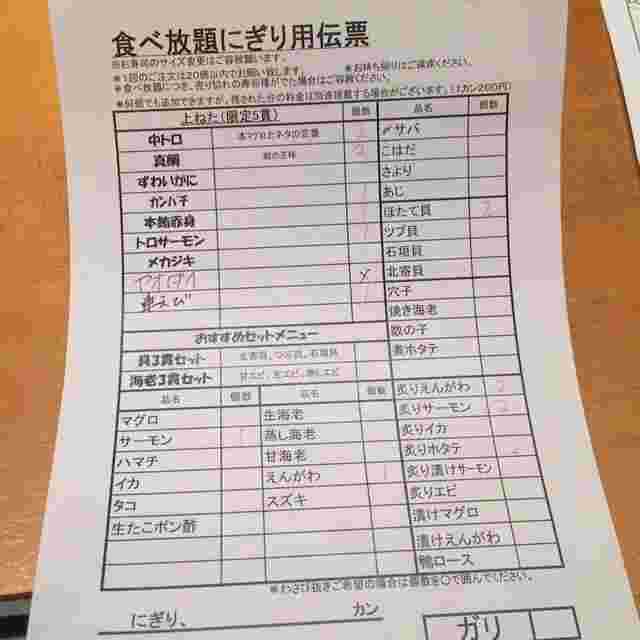 食べ放題にぎり用伝票
※お寿司のサイズ変更はご容赦願います。
＊1回のご注文は20個以内でお願い致します。 ＊お持ち帰りはご遠慮ください。
＊食べ放題につき、売り切れの寿司種がでた場合はご容赦ください。
＊何個でも追加できますが、残された分の料金は別途頂戴する場合がございます。(1カン200円)
上ねた(限定5貫) 個数 品名 個数
中トロ 〆サバ
真鯛 2 こはだ
ずわいがに さより
カンパチ あじ
本鮪赤身 ほたて貝 2
トロサーモン ツブ貝
メカジキ 石垣貝
アオダイ 北寄貝
車えび 穴子
焼き海老
おすすめセットメニュー 数の子
貝3貫セット 北寄貝、つぶ貝、石垣貝 煮ホタテ
海老3貫セット
品名 個数 品名 個数 炙りえんがわ 2
マグロ 生海老 炙りサーモン 2
サーモン 1 蒸し海老 炙りイカ
ハマチ 甘海老 炙りホタテ
イカ えんがわ 1 炙り漬けサーモン
タコ スズキ 炙りエビ
生たこポン酢 漬けマグロ
漬けえんがわ
鴨ロース
※わさび抜きご希望の場合は個数を○で囲んでください。
にぎり、 カン
ガリ